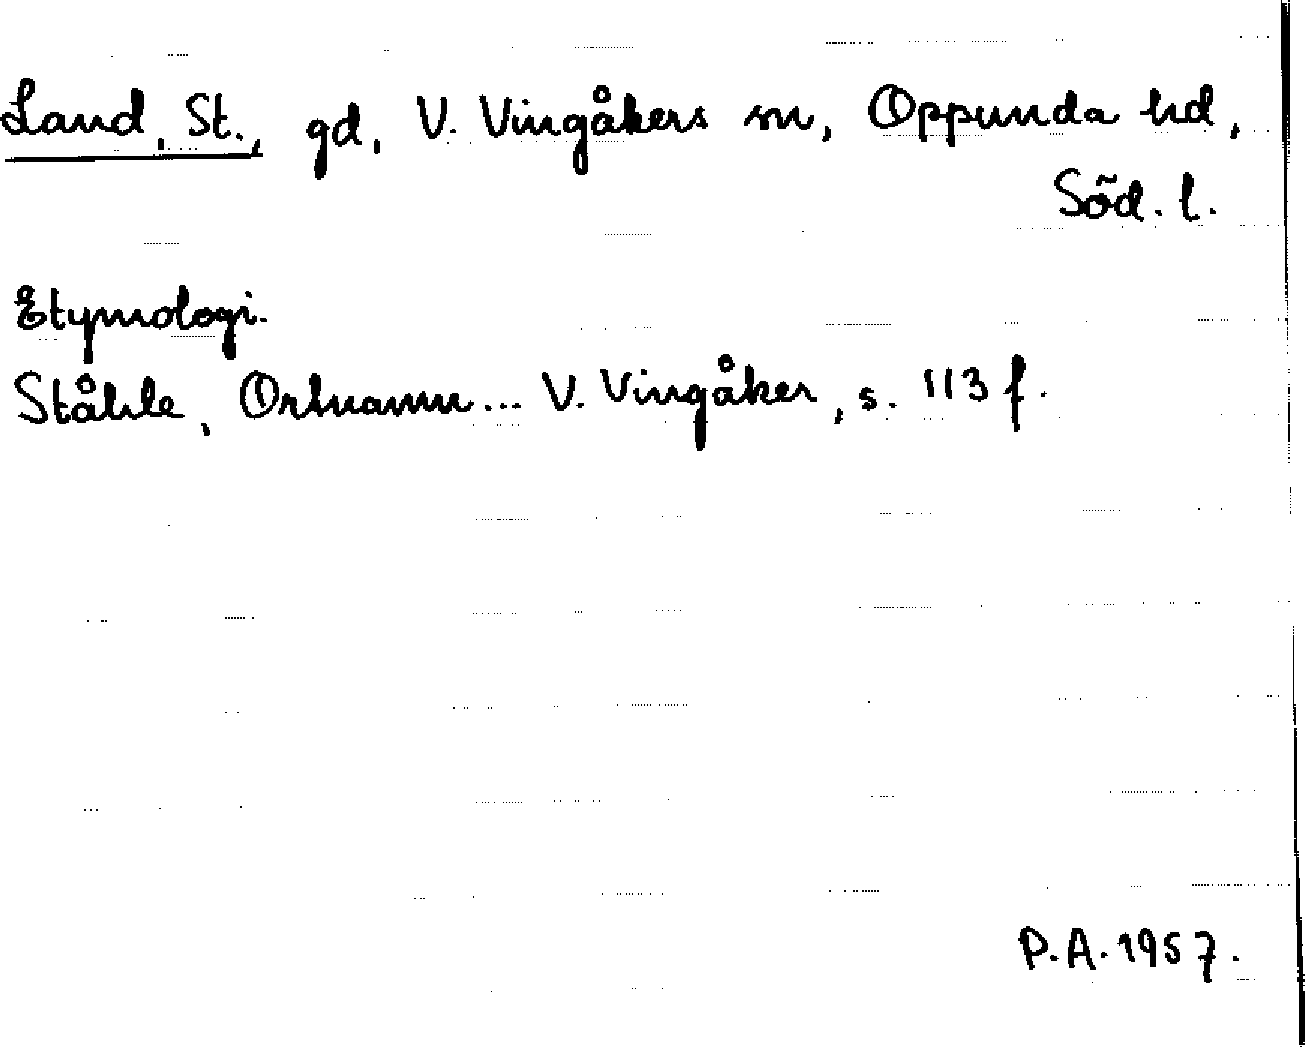 Land, St., gd, V. Vingåkers sn, Oppunda hd,
Söd. l.
Etymologi.
Ståhle, Ortnamn... V. Vingåker, s. 113 f.
P.A. 1957.